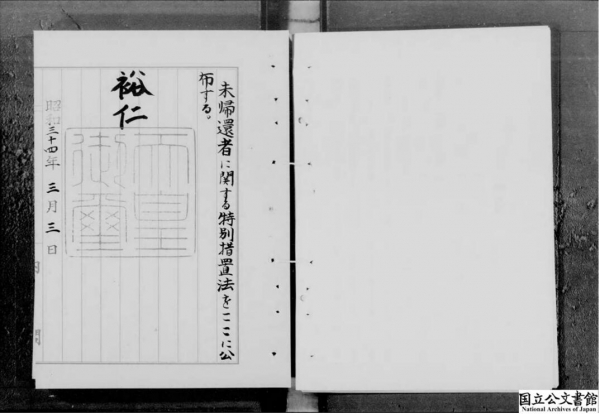 未帰還者に関する特別措置法をここに公
布する。
裕仁
天皇
御璽
昭和三十四年 三月 三日
国立公文書館
National Archives of Japan